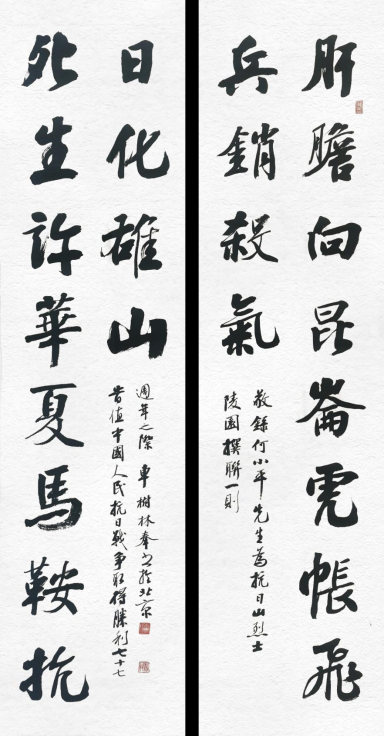 肝膽向昆崙虎帳飛
兵銷殺氣
敬錄何小平先生為抗日山烈士
陵園撰聯一則
死生許華夏馬鞍抗
日化雄山
旹值中國人民抗日戰爭取得勝利七十七
週年之際 樹林奉書於北京